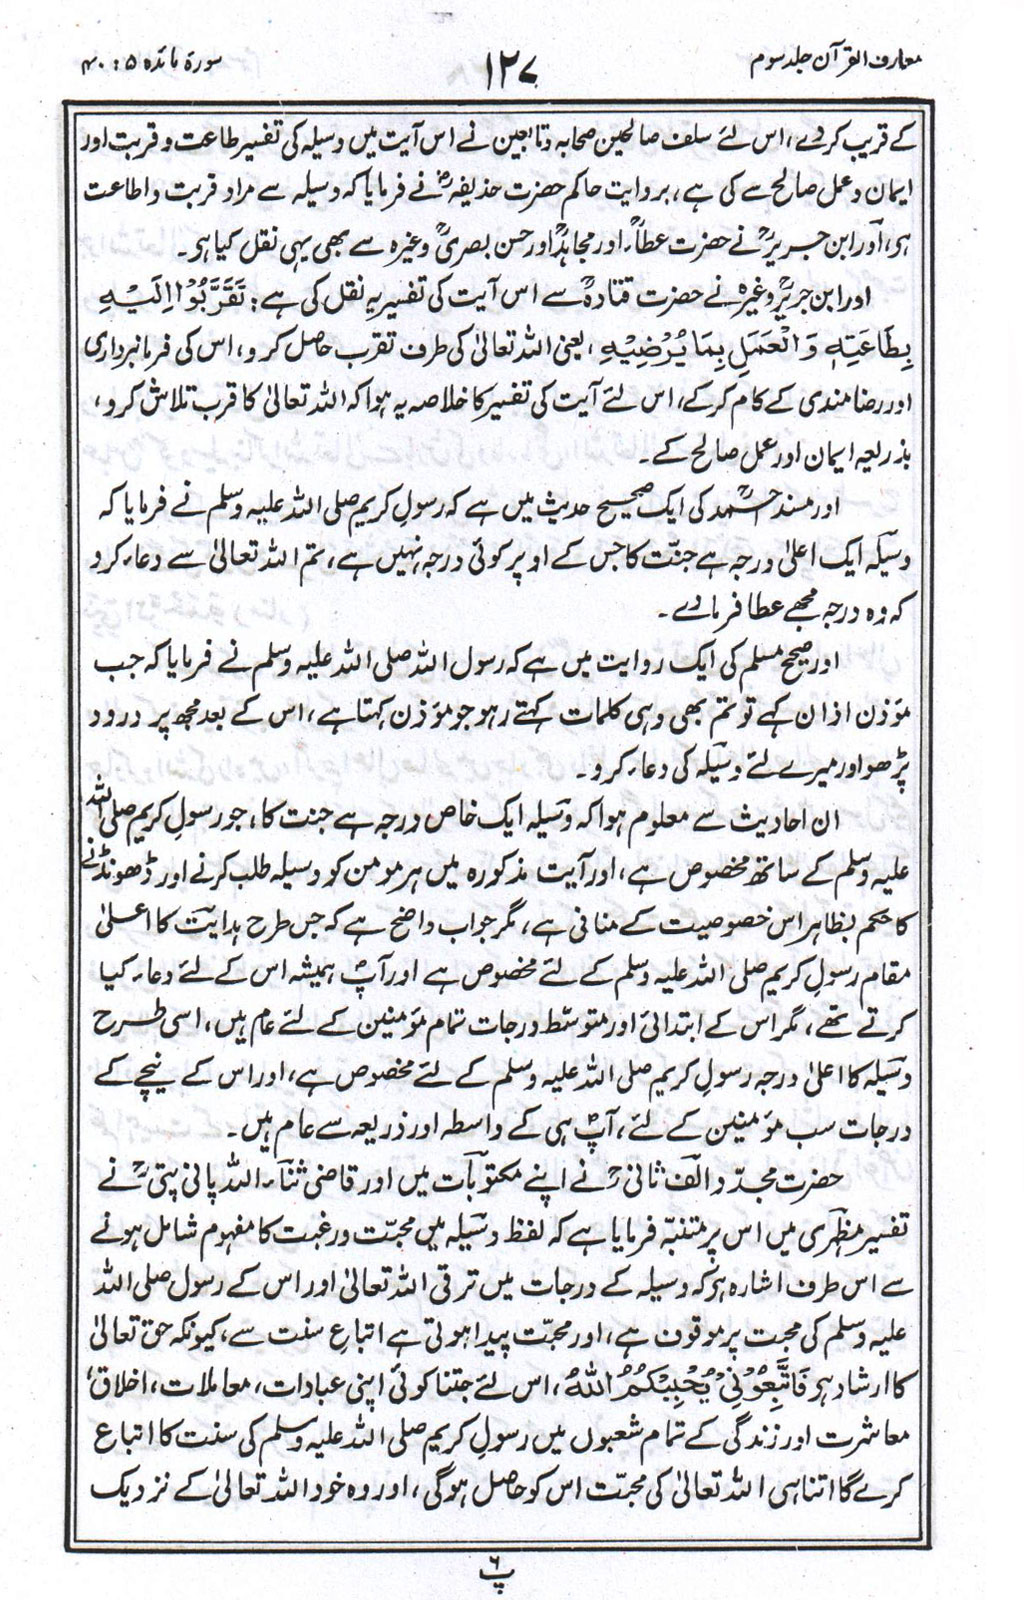 معارف القرآن جلد سوم
۱۲۷
سورۃ مائدہ ۵ : ۴۰
کے قریب کردے، اس لئے سلف صالحین صحابہ وتابعین نے اس آیت میں وسیلہ کی تفسیر طاعت وقربت اور
ایمان وعمل صالح سے کی ہے، بروایت حاکم حضرت حذیفہؓ نے فرمایا کہ وسیلہ سے مراد قربت واطاعت
ہی، اور ابن جریرؒ نے حضرت عطاءؒ اور مجاہدؒ اور حسن بصریؒ وغیرہ سے بھی یہی نقل کیا ہی۔
اور ابن جریرؒ وغیرہ نے حضرت قتادہؒ سے اس آیت کی تفسیر یہ نقل کی ہے : تَقَرَّبُوْا اِلَيْهِ
بِطَاعَتِهٖ وَالْعَمَلِ بِمَا يُرْضِيْهِ، یعنی اللہ تعالیٰ کی طرف تقرب حاصل کرو، اس کی فرمانبرداری
اور رضامندی کے کام کرکے، اس لئے آیت کی تفسیر کا خلاصہ یہ ہوا کہ اللہ تعالیٰ کا قرب تلاش کرو،
بذریعہ ایمان اور عمل صالح کے۔
اور مسند احمدؒ کی ایک صحیح حدیث میں ہے کہ رسولِ کریم صلی اللہ علیہ وسلم نے فرمایا کہ
وسیلہ ایک اعلیٰ درجہ ہے جنّت کا جس کے اوپر کوئی درجہ نہیں ہے، تم اللہ تعالیٰ سے دعاء کرو
کہ وہ درجہ مجھے عطا فرمادے۔
اور صحیح مسلم کی ایک روایت میں ہے کہ رسول اللہ صلی اللہ علیہ وسلم نے فرمایا کہ جب
مؤذن اذان کہے تو تم بھی وہی کلمات کہتے رہو جو مؤذن کہتا ہے، اس کے بعد مجھ پر درود
پڑھو اور میرے لئے وسیلہ کی دعاء کرو۔
ان احادیث سے معلوم ہوا کہ وسیلہ ایک خاص درجہ ہے جنت کا، جو رسولِ کریم صلی اللہ
علیہ وسلم کے ساتھ مخصوص ہے، اور آیت مذکورہ میں ہر مومن کو وسیلہ طلب کرنے اور ڈھونڈنے
کا حکم بظاہر اس خصوصیت کے منافی ہے، مگر جواب واضح ہے کہ جس طرح ہدایت کا اعلیٰ
مقام رسولِ کریم صلی اللہ علیہ وسلم کے لئے مخصوص ہے اور آپؐ ہمیشہ اس کے لئے دعاء کیا
کرتے تھے، مگر اس کے ابتدائی اور متوسّط درجات تمام مؤمنین کے لئے عام ہیں، اسی طرح
وسیلہ کا اعلیٰ درجہ رسولِ کریم صلی اللہ علیہ وسلم کے لئے مخصوص ہے، اور اس کے نیچے کے
درجات سب مؤمنین کے لئے، آپؐ ہی کے واسطہ اور ذریعہ سے عام ہیں۔
حضرت مجدّد الف ثانیؒ نے اپنے مکتوبات میں اور قاضی ثناء اللہ پانی پتیؒ نے
تفسیر مظہری میں اس پر متنبّہ فرمایا ہے کہ لفظ وسیلہ میں محبّت ورغبت کا مفہوم شامل ہونے
سے اس طرف اشارہ ہو کہ وسیلہ کے درجات میں ترقی اللہ تعالیٰ اور اس کے رسول صلی اللہ
علیہ وسلم کی محبت پر موقوف ہے، اور محبّت پیدا ہوتی ہے اتباعِ سنت سے، کیونکہ حق تعالیٰ
کا ارشاد ہو فَاتَّبِعُوْنِيْ يُحْبِبْكُمُ اللّٰهُ، اس لئے جتنا کوئی اپنی عبادات، معاملات، اخلاق،
معاشرت اور زندگی کے تمام شعبوں میں رسولِ کریم صلی اللہ علیہ وسلم کی سنت کا اتباع
کرے گا اتنا ہی اللہ تعالیٰ کی محبّت اس کو حاصل ہوگی، اور وہ خود اللہ تعالیٰ کے نزدیک
پ۶